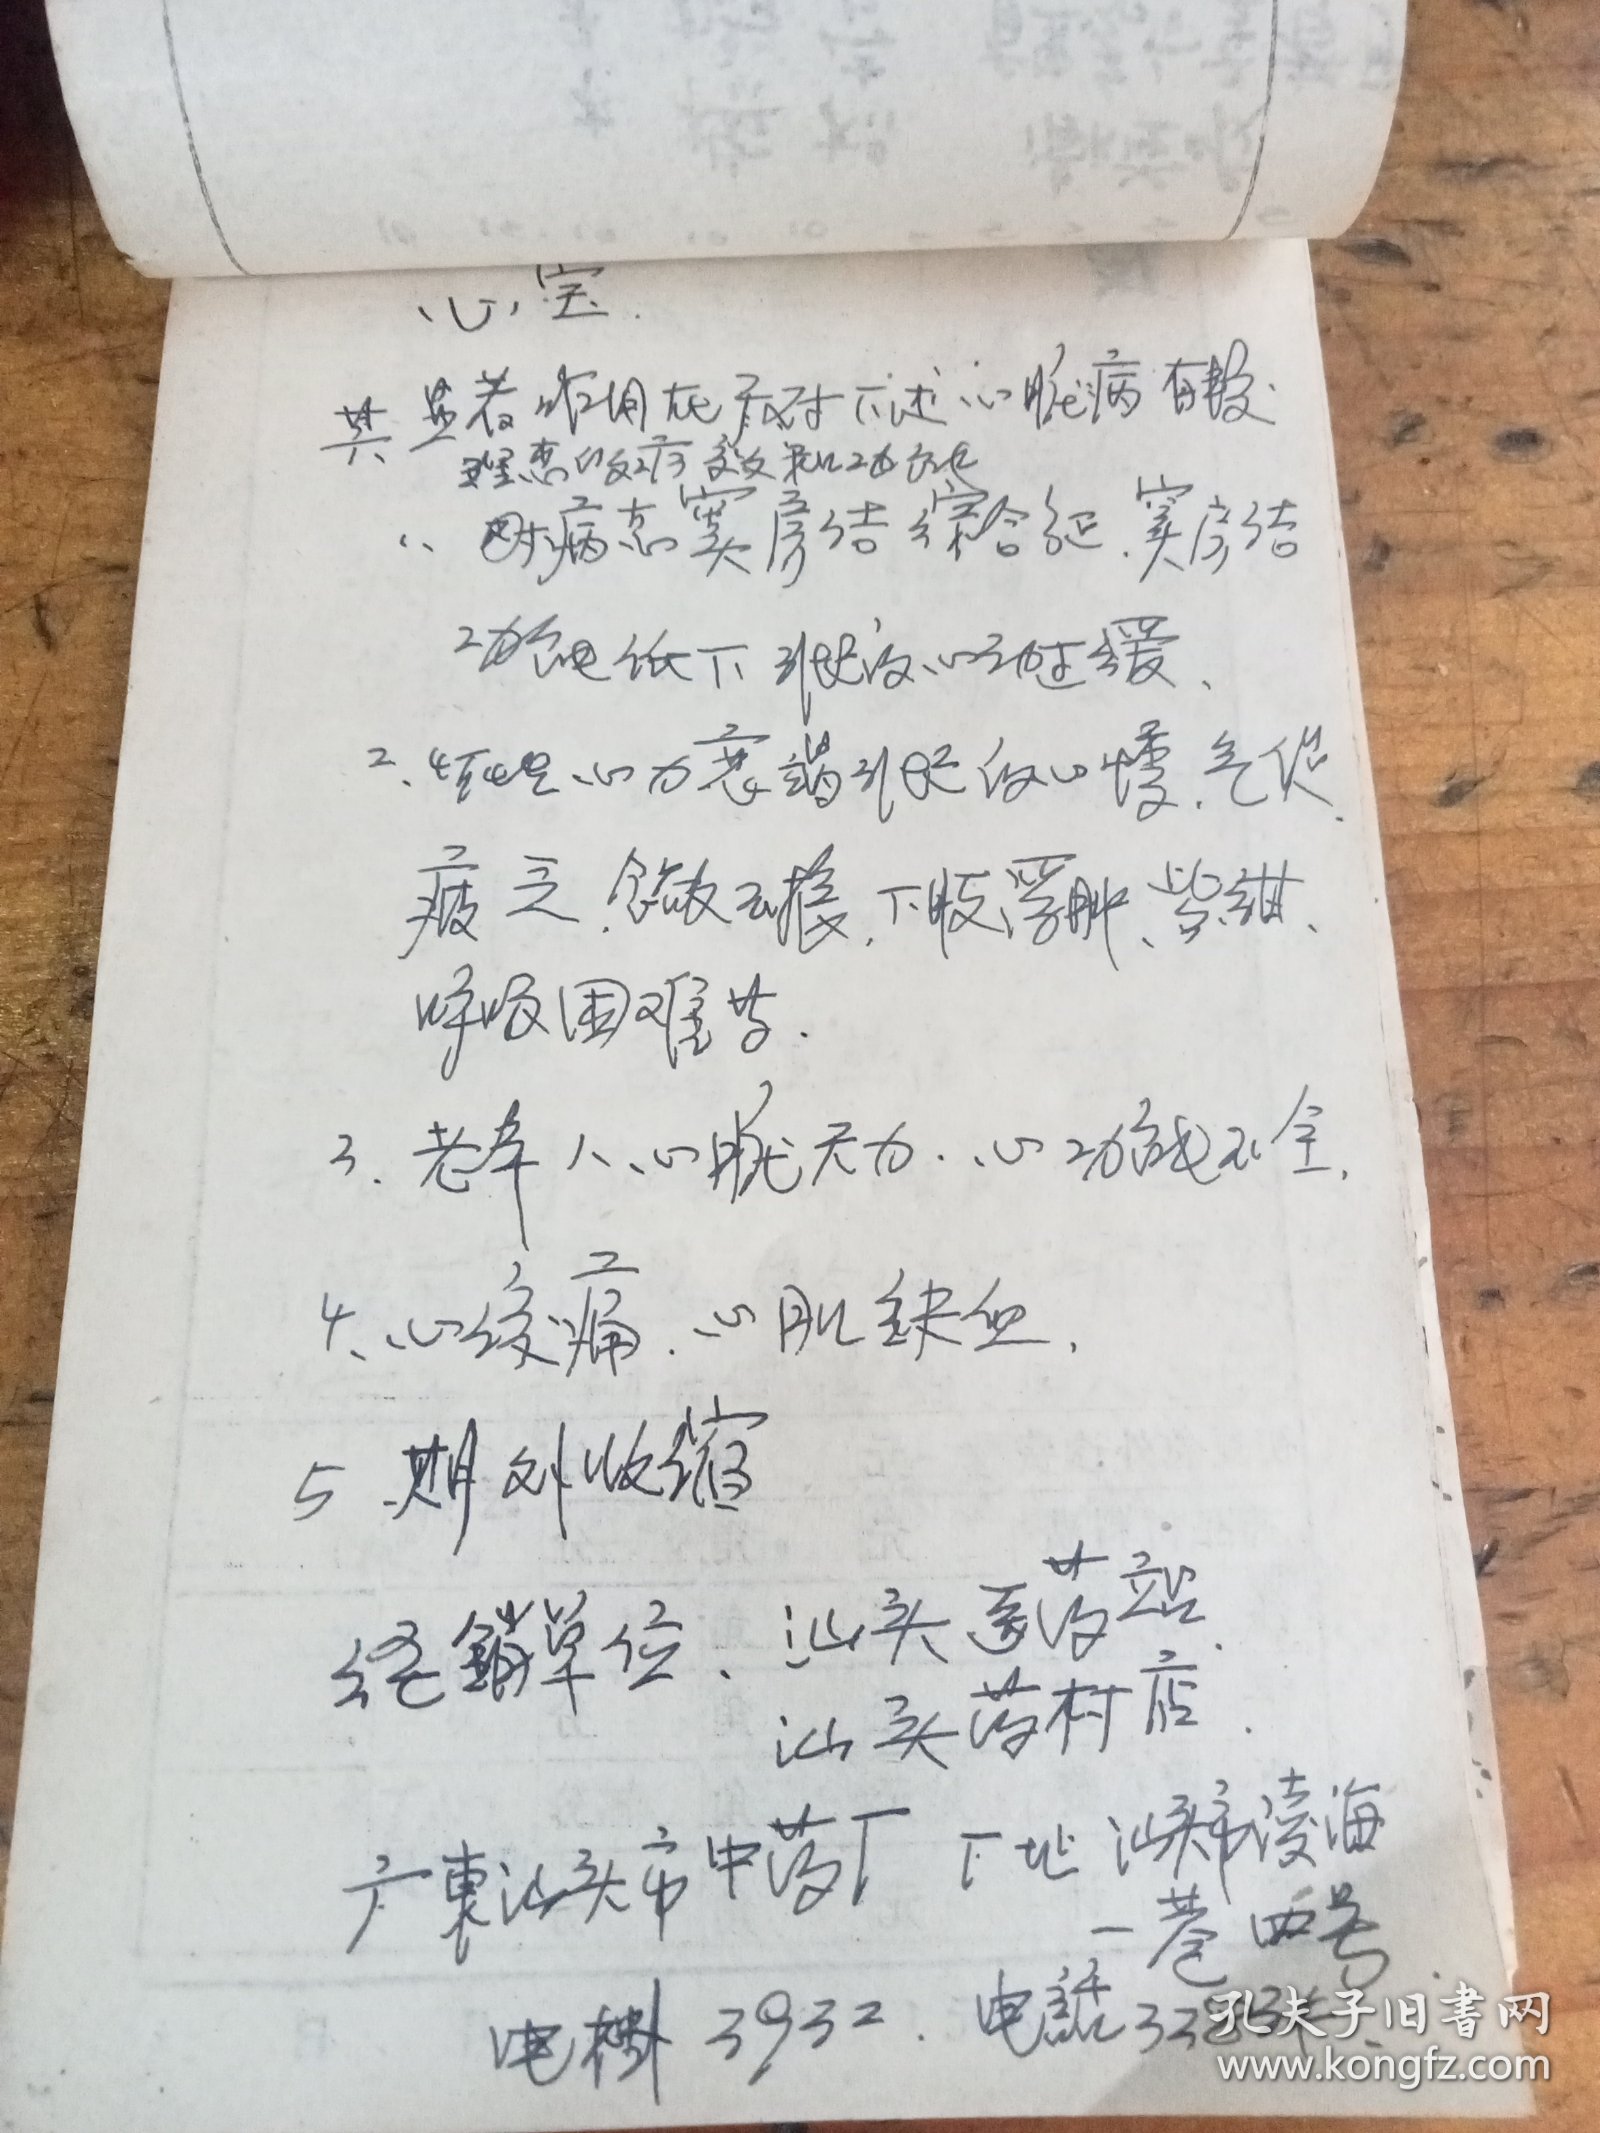 心宝.
其显著作用在于对下述心脏病有较
理想的治疗效果和功能
1、对病态窦房结综合征、窦房结
功能低下引起的心动过缓、
2、慢性心力衰竭引起的心悸、气促、
疲乏、食欲不振、下肢浮肿、紫绀、
呼吸困难等.
3、老年人心脏无力、心功能不全.
4、心绞痛、心肌缺血.
5、期外收缩
经銷单位、汕头医药站.
汕头药材店.
广東汕头市中药厂 厂址 汕头市凌海
一巷四号.
电掛 3932. 电話
孔夫子旧书网
www.kongfz.com